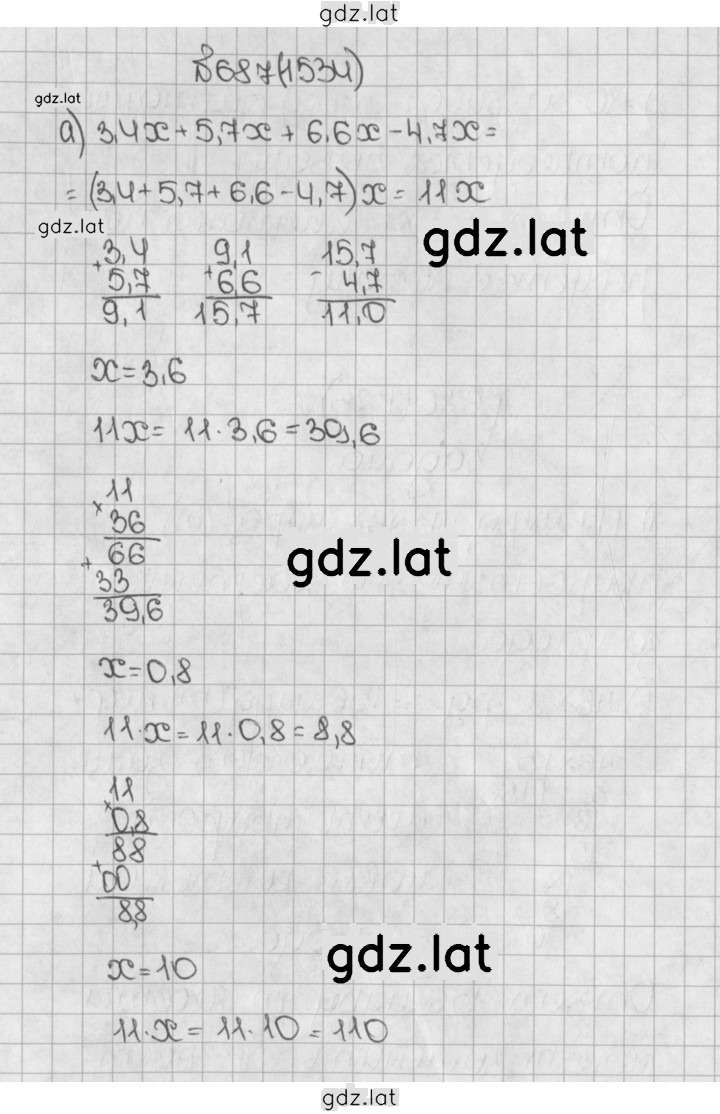 gdz.lat
№687(1534)
gdz.lat
а) 3,4x + 5,7x + 6,6x - 4,7x =
= (3,4 + 5,7 + 6,6 - 4,7)x = 11x
gdz.lat
gdz.lat
+ 3,4 9,1 15,7
5,7 + 6,6 - 4,7
9,1 15,7 11,0
x = 3,6
11x = 11 · 3,6 = 39,6
11
× 36
66
+ 33
39,6
gdz.lat
x = 0,8
11 · x = 11 · 0,8 = 8,8
11
× 0,8
88
+ 00
8,8
gdz.lat
x = 10
11 · x = 11 · 10 = 110
gdz.lat